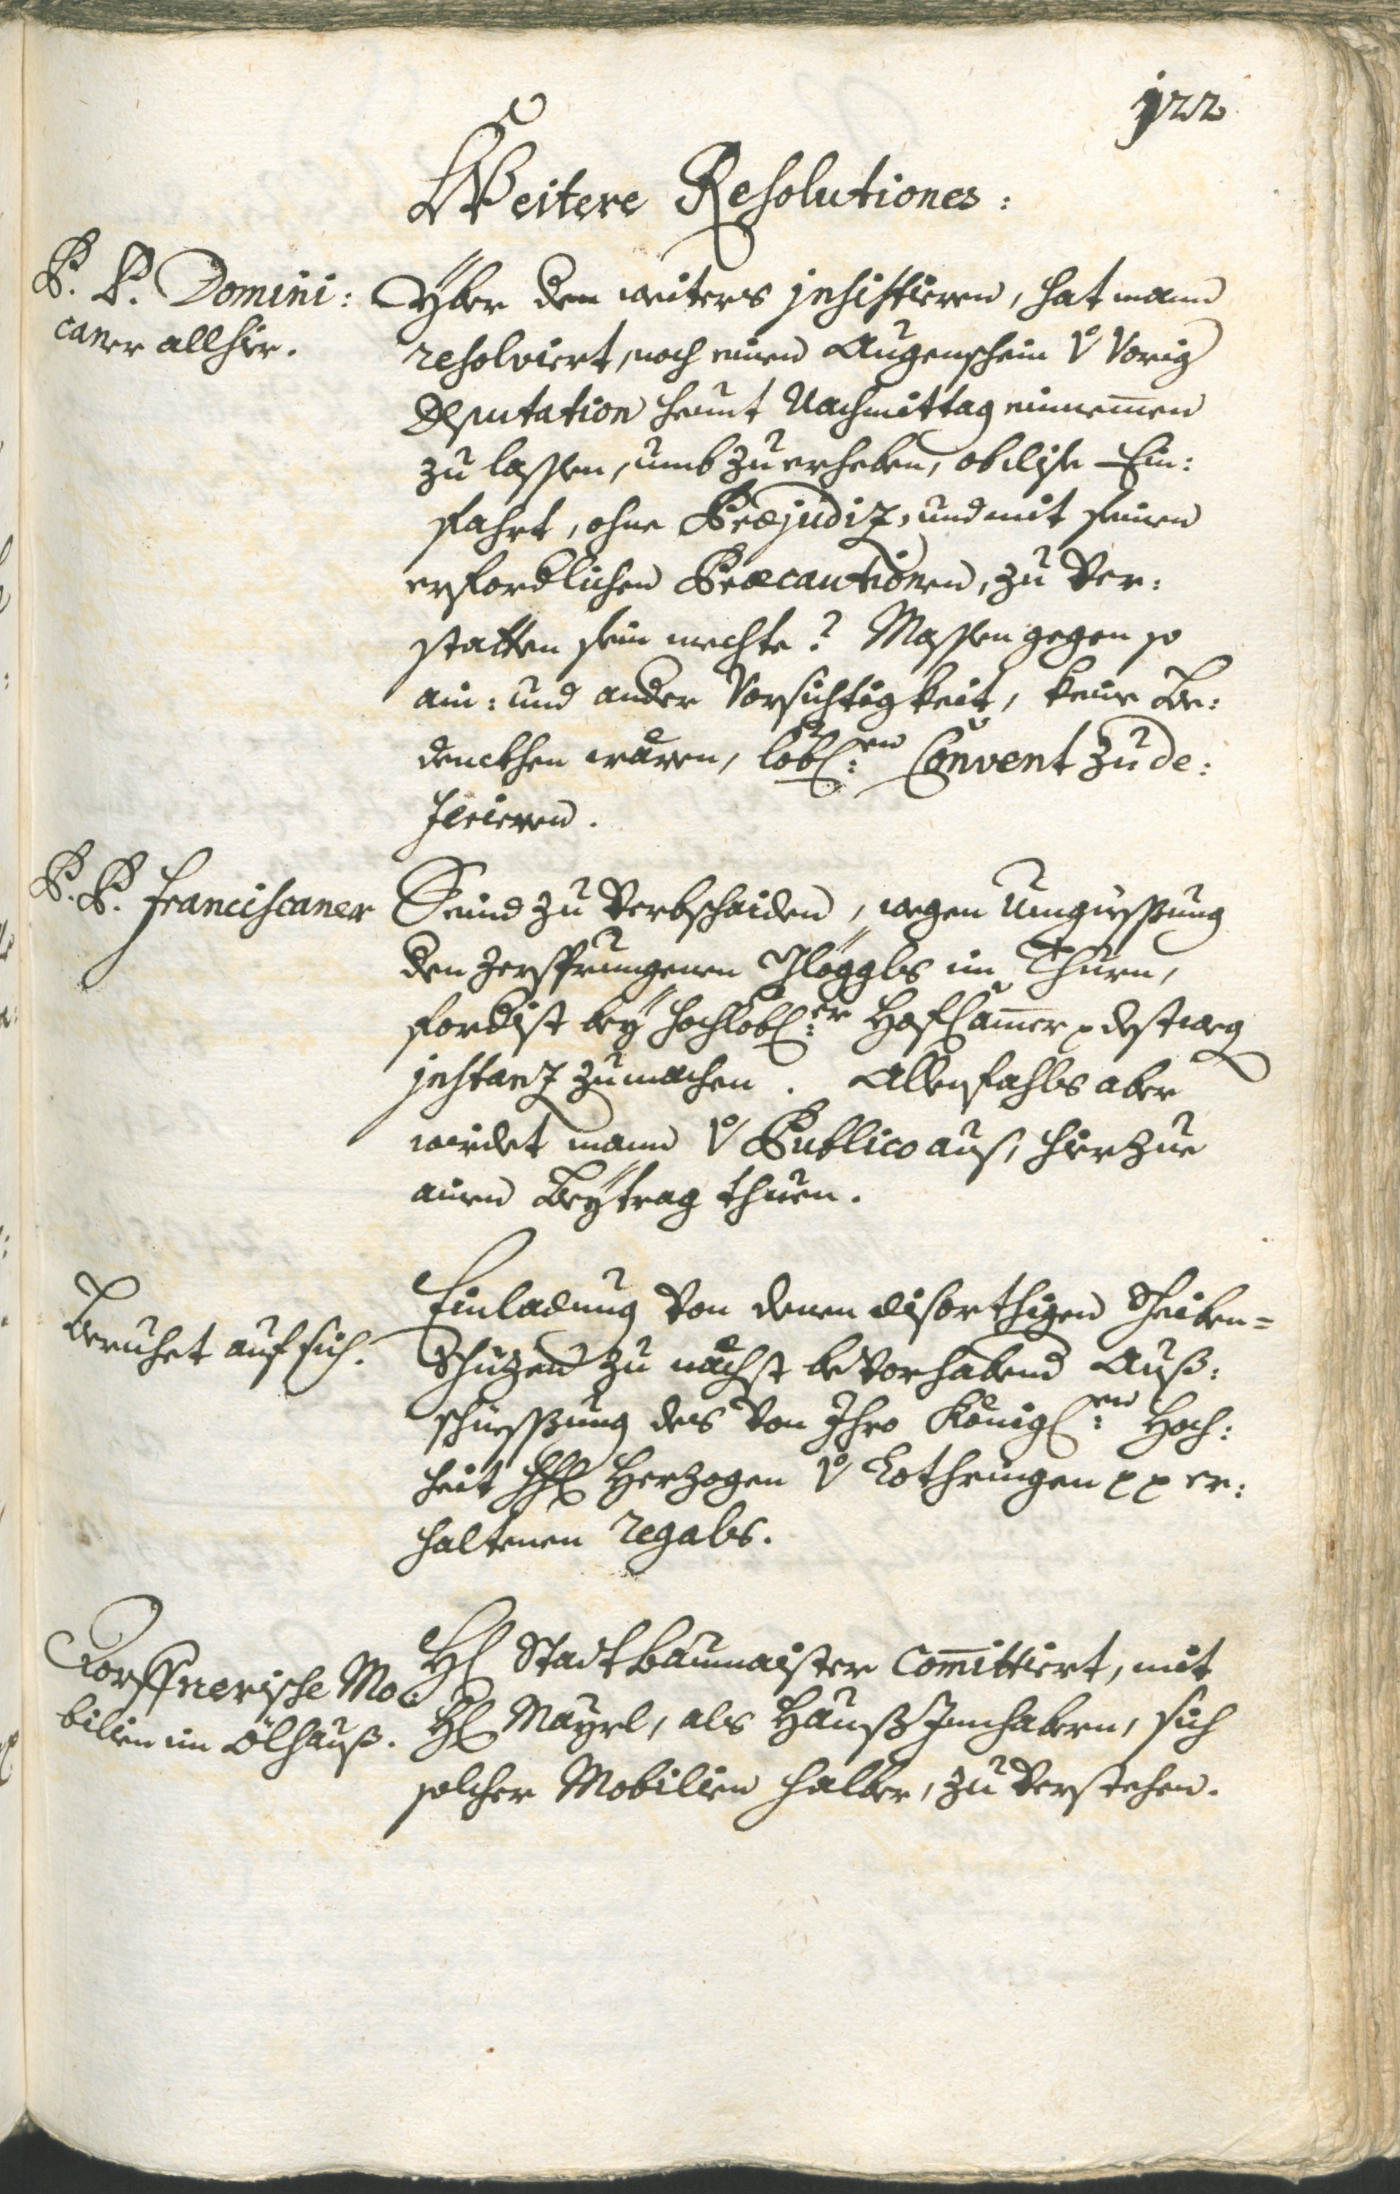 122
Weitere Resolutiones:
P. P. Domini:
caner allhir.
Yber dem weiters jnsistieren, hat mann
resolviert, noch einen Augenschein v. Vorig
Deputation heunt Nachmittag einnemen
zu lassen, umb zu erheben, ob dise Ein:
fahrt, ohne Præjudiz, und mit seinen
erfordlichen Præcautionen, zu ver:
statten sein mechte? Massen gegen so
ain: und ander Vorsichtigkeit, keine Be:
denckhen wären, löbl:en Convent zu de:
ferieren.
P. P. Franciscaner
Seind zu verbschaiden, wegen Umgiessung
den zersprungenen Glöggls im Thurn,
fordist bey hochlöbl:er HofCamer p destweg
jnstanz zumachen. Allenfahls aber
wirdet mann v. Publico aus, hierzue
ainen Beytrag thuen.
Beruhet auf sich.
Einladung von denen disorthigen Scheiben-
Schüzen zu nächst bevorhabend Auß:
schiessung des von Ihro Königl:en Hoch:
heit Herzogen v. Lothringen p p er:
haltenen regals.
Dorffnerische Mo:
bilien im Ölhauß.
H: Stadtbaumaister Committiert, mit
H: Mayrl, als Hauß Innhabern, sich
solcher Mobilien halber, zu verstehen.